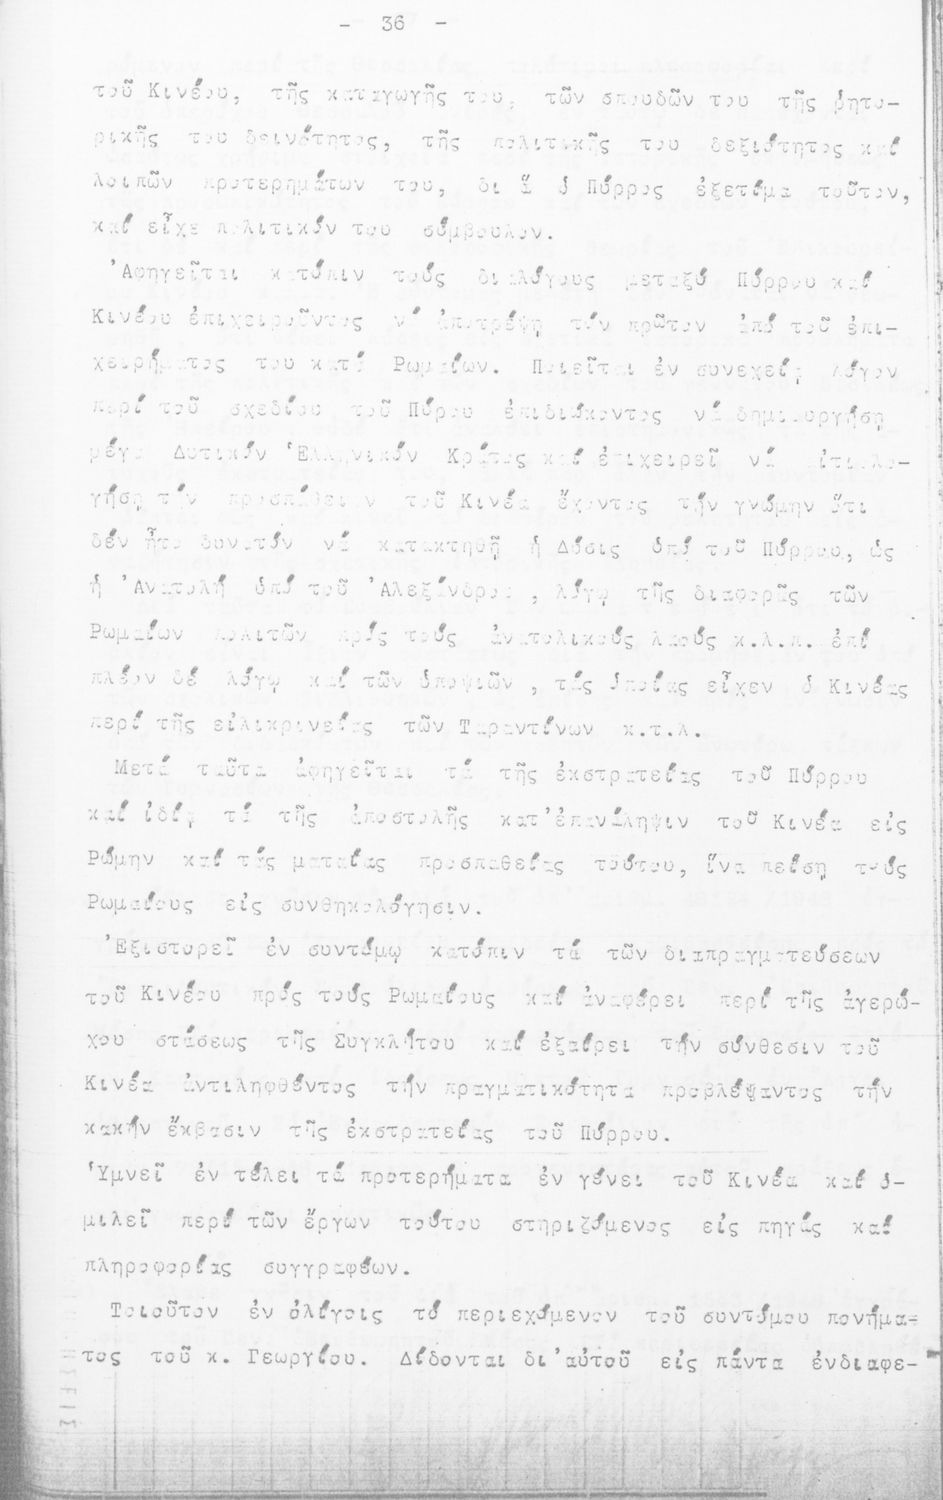 - 36 -
τοῦ Κινέου, τῆς καταγωγῆς του, τῶν σπουδῶν του τῆς ῥητο-
ρικῆς του δεινότητος, τῆς πολιτικῆς του δεξιότητος καί
λοιπῶν προτερημάτων του, δι ἅ ὁ Πύρρος ἐξετίμα τοῦτον,
καί εἶχε πολιτικόν του σύμβουλον.
Ἀφηγεῖται κατόπιν τούς διαλόγους μεταξύ Πύρρου καί
Κινέου ἐπιχειροῦντος νά ἀποτρέψη τόν πρῶτον ἀπό τοῦ ἐπι-
χειρήματος του κατά Ρωμαίων. Ποιεῖται ἐν συνεχείᾳ λόγον
περί τοῦ σχεδίου τοῦ Πύρου ἐπιδιώκοντος νά δημιουργήση
μέγα Δυτικόν Ἑλληνικόν Κράτος καί ἐπιχειρεῖ νά αἰτιολο-
γήση τήν προσπάθειαν τοῦ Κινέα ἔχοντος τήν γνώμην ὅτι
δέν ἦτο δυνατόν νά κατακτηθῇ ἡ Δύσις ὑπό τοῦ Πύρρου, ὡς
ἡ Ἀνατολή ὑπό τοῦ Ἀλεξάνδρου, λόγῳ τῆς διαφορᾶς τῶν
Ρωμαίων πολιτῶν πρός τούς ἀνατολικούς λαούς κ.λ.π. ἐπί
πλέον δέ λόγῳ καί τῶν ὑποψιῶν , τάς ὁποίας εἶχεν ὁ Κινέας
περί τῆς εἰλικρινείας τῶν Ταραντίνων κ.τ.λ.
Μετά ταῦτα ἀφηγεῖται τά τῆς ἐκστρατείας τοῦ Πύρρου
καί ἰδίᾳ τά τῆς ἀποστολῆς κατ'ἐπανάληψιν τοῦ Κινέα εἰς
Ρώμην καί τάς ματαίας προσπαθείας τούτου, ἵνα πείση τούς
Ρωμαίους εἰς συνθηκολόγησιν.
Ἐξιστορεῖ ἐν συντόμῳ κατόπιν τά τῶν διαπραγματεύσεων
τοῦ Κινέου πρός τούς Ρωμαίους καί ἀναφέρει περί τῆς ἀγερώ-
χου στάσεως τῆς Συγκλήτου καί ἐξαίρει τήν σύνθεσιν τοῦ
Κινέα ἀντιληφθέντος τήν πραγματικότητα προβλέψαντος τήν
κακήν ἔκβασιν τῆς ἐκστρατείας τοῦ Πύρρου.
Ὑμνεῖ ἐν τέλει τά προτερήματα ἐν γένει τοῦ Κινέα καί ὁ-
μιλεῖ περί τῶν ἔργων τούτου στηριζόμενος εἰς πηγάς καί
πληροφορίας συγγραφέων.
Τοιοῦτον ἐν ὀλίγοις τό περιεχόμενον τοῦ συντόμου πονήμα-
τος τοῦ κ. Γεωργίου. Δίδονται δι'αὐτοῦ εἰς πάντα ἐνδιαφε-